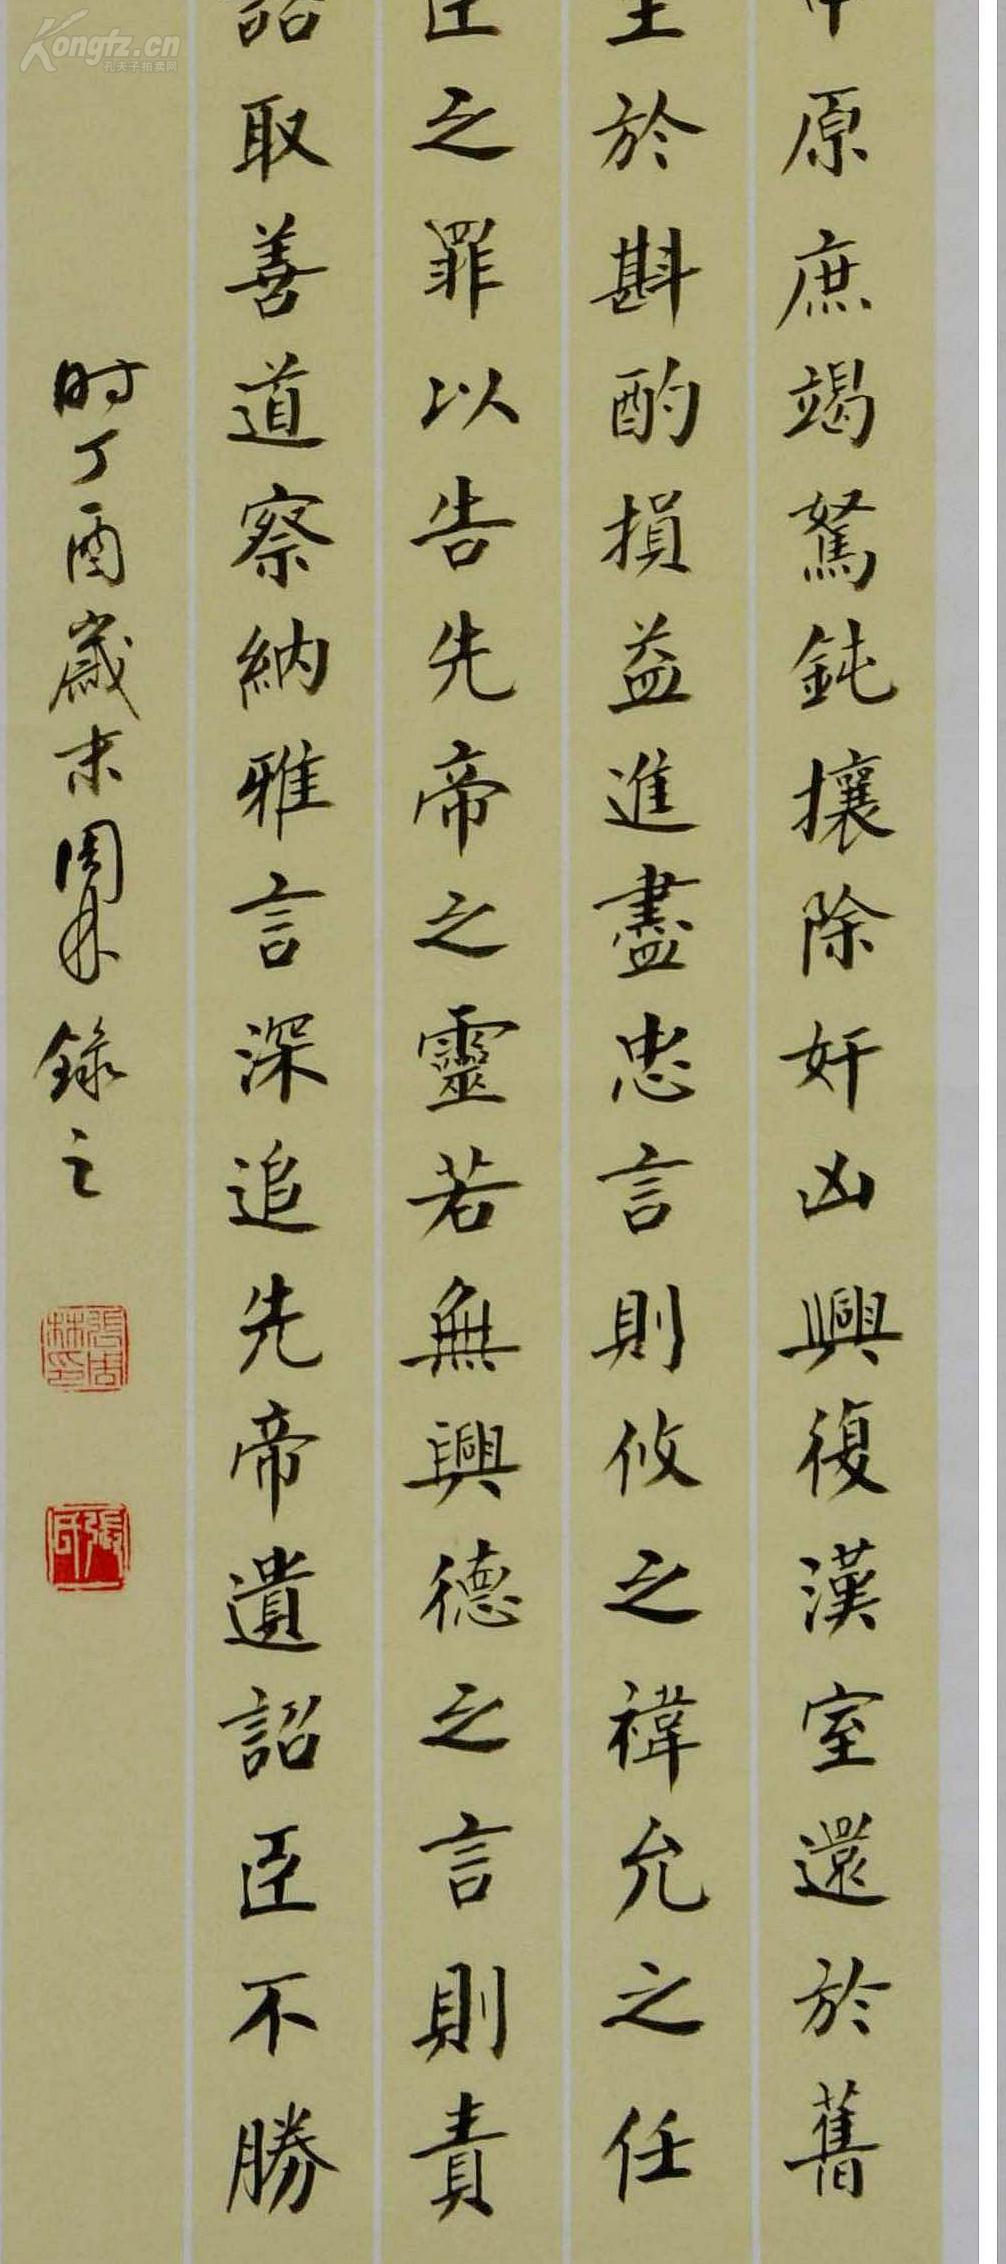 中原庶竭駑鈍攘除奸凶興復漢室還於舊
至於斟酌損益進盡忠言則攸之禕允之任
臣之罪以告先帝之靈若無興德之言則責
詔取善道察納雅言深追先帝遺詔臣不勝
时丁酉歲末周林錄之
張周林印
張氏
Kongfz.cn
孔夫子拍卖网